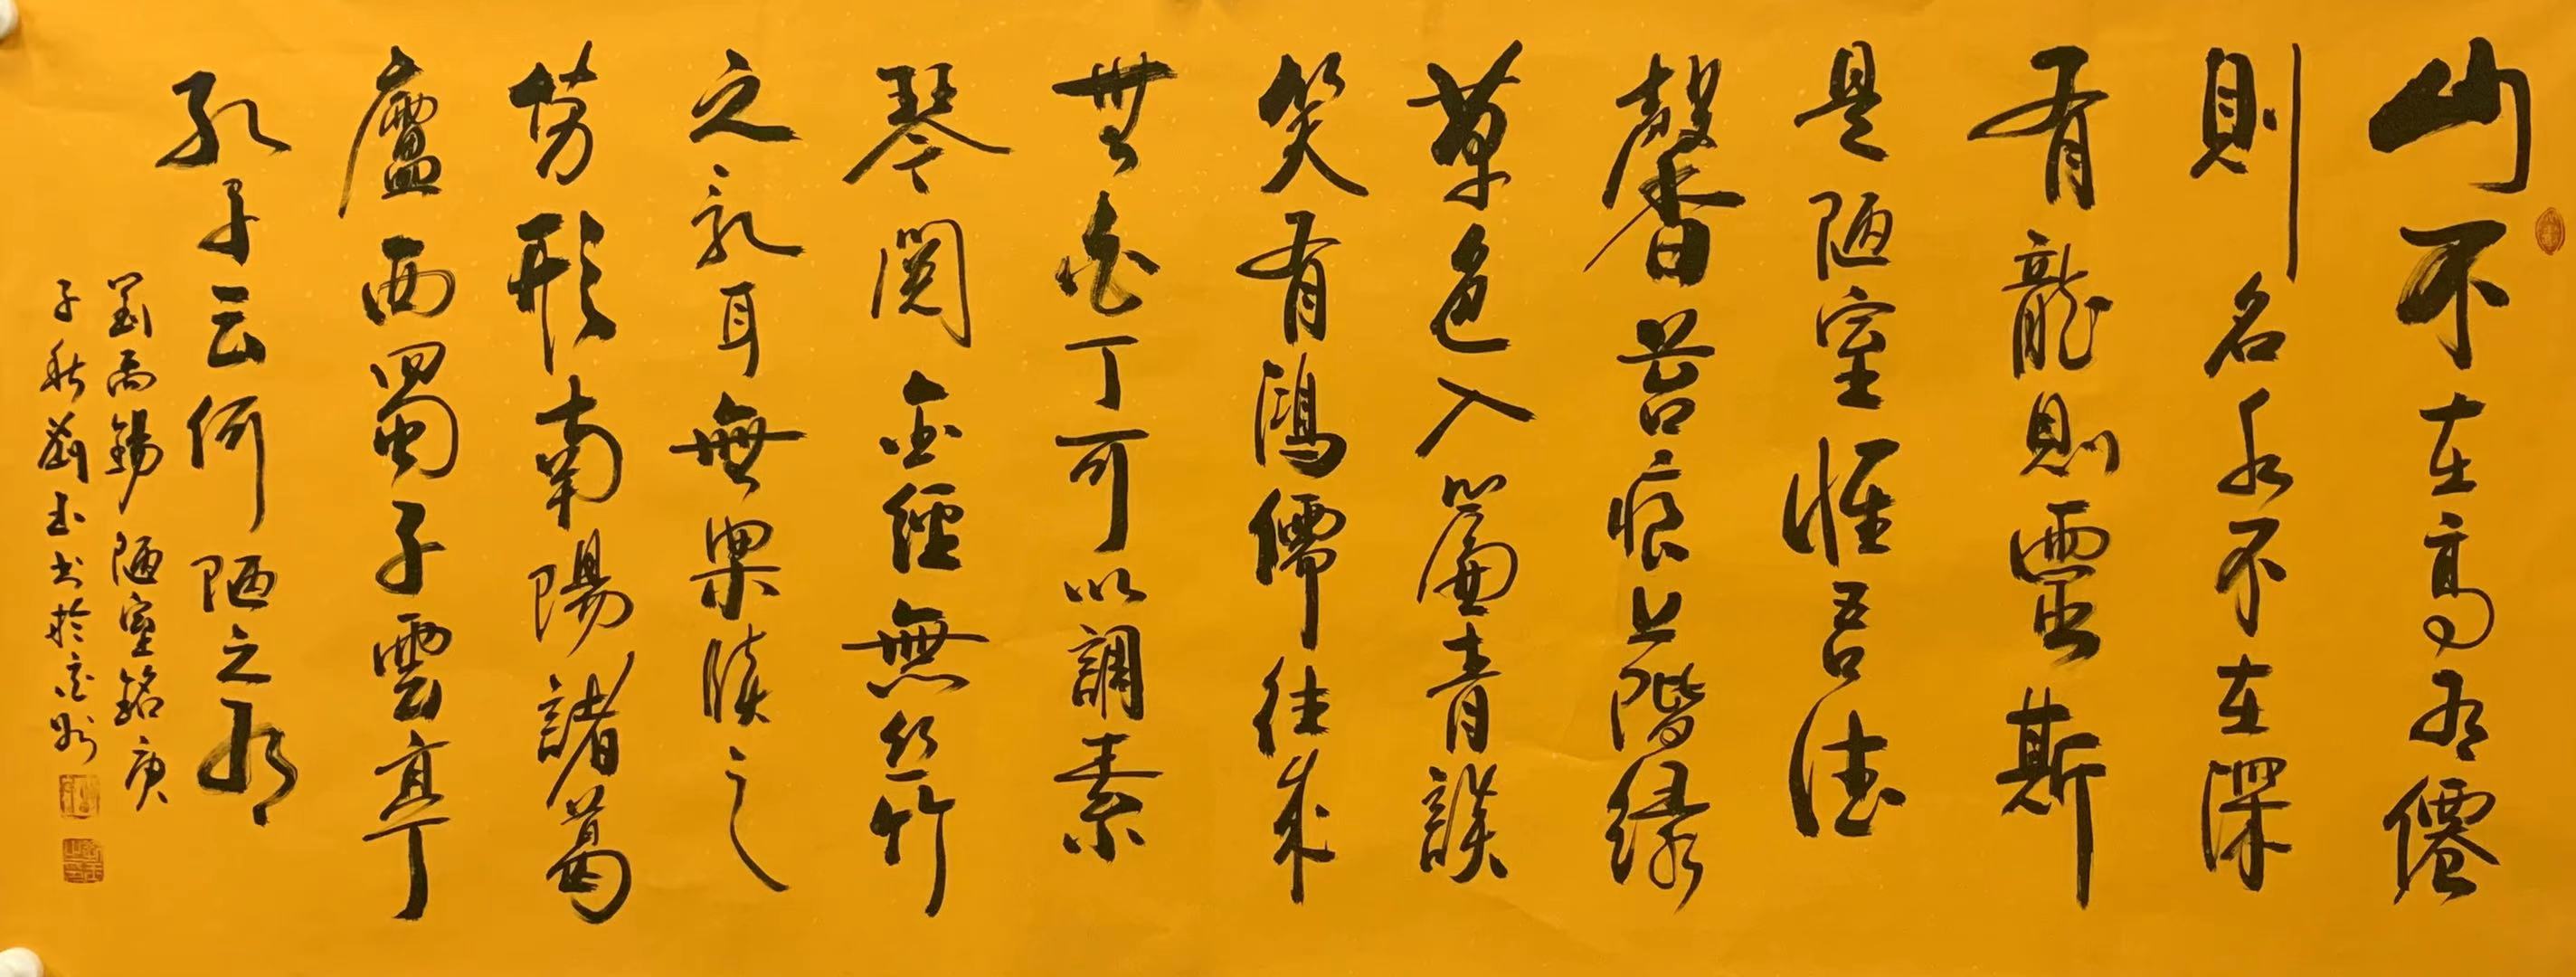 山不在高有僊
則名水不在深
有龍則靈斯
是陋室惟吾德
馨苔痕上階緑
草色入簾青談
笑有鴻儒往来
無白丁可以調素
琴閱金經無絲竹
之亂耳無案牘之
勞形南陽諸葛
廬西蜀子雲亭
孔子云何陋之有
劉禹錫陋室銘庚
子秋劉玉书於